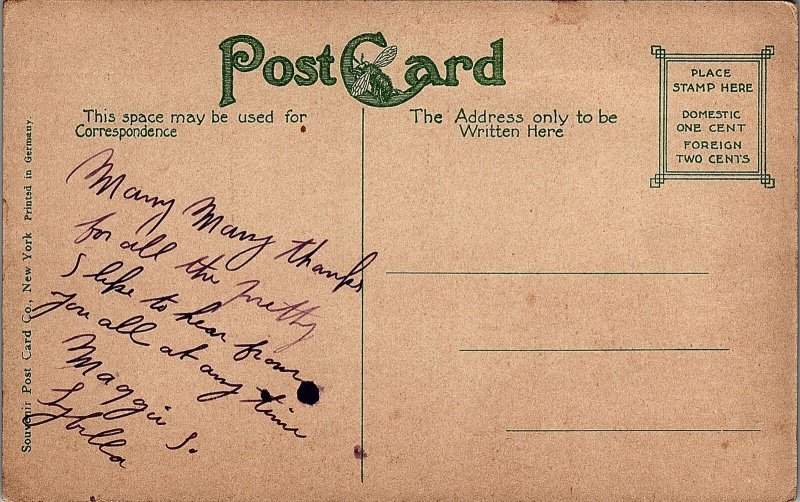 Post Card
This space may be used for
Correspondence
The Address only to be
Written Here
PLACE
STAMP HERE
DOMESTIC
ONE CENT
FOREIGN
TWO CENTS
Souvenir Post Card Co., New York Printed in Germany
Many Many thanks
for all the pretty
I like to hear from
you all at any time
Maggie S.
Sybella